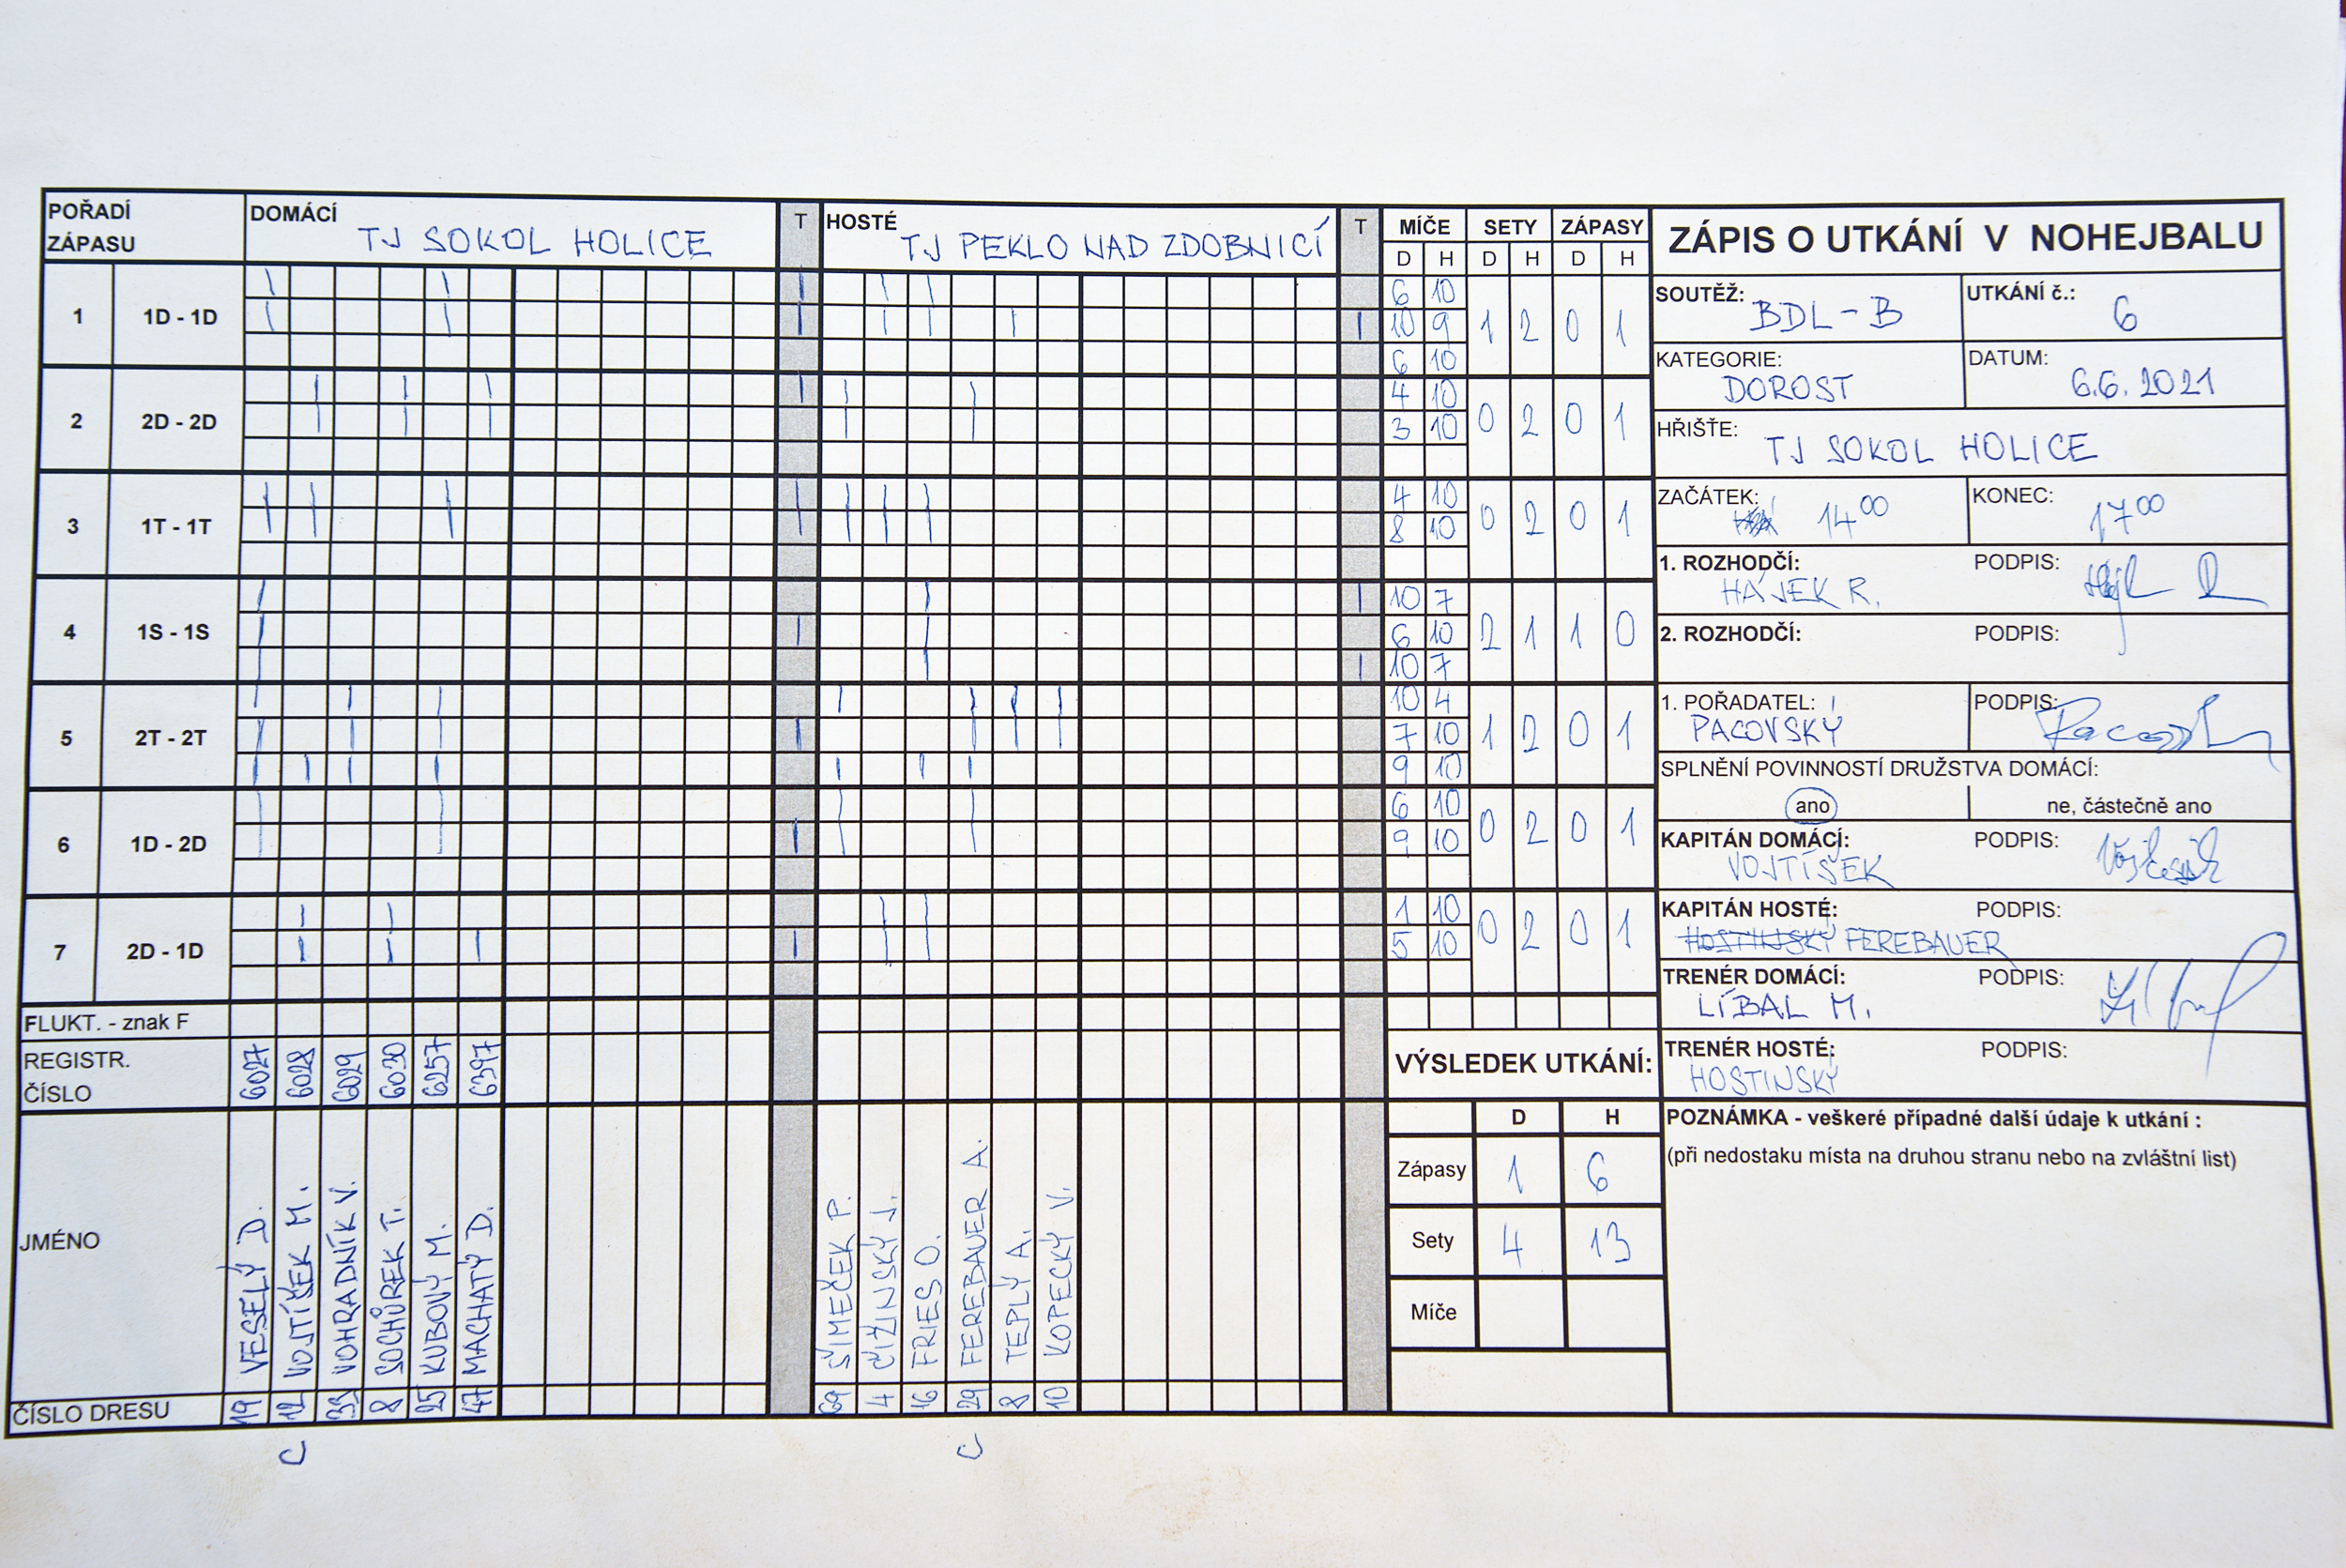 POŘADÍ
ZÁPASU
DOMÁCÍ TJ SOKOL HOLICE
T
HOSTÉ TJ PEKLO NAD ZDOBNICÍ
T
MÍČE SETY ZÁPASY
D H D H D H
1 1D - 1D
6 10
10 9 1 2 0 1
6 10
2 2D - 2D
4 10
3 10 0 2 0 1
3 1T - 1T
4 10
8 10 0 2 0 1
4 1S - 1S
10 7
6 10 2 1 1 0
10 7
5 2T - 2T
10 4
7 10 1 2 0 1
9 10
6 1D - 2D
6 10
9 10 0 2 0 1
7 2D - 1D
1 10
5 10 0 2 0 1
FLUKT. - znak F
REGISTR.
ČÍSLO
6027 6028 6029 6030 6257 6397
JMÉNO
VESELÝ D.
VOJTÍŠEK M.
VOHRADNÍK V.
SOCHŮREK T.
KUBOVÝ M.
MACHATÝ D.
ŠIMEČEK P.
ČIŽINSKÝ J.
FRIES O.
FEREBAUER A.
TEPLÝ A.
KOPECKÝ V.
ČÍSLO DRESU
19 12 33 8 25 47
69 4 16 29 8 10
C C
ZÁPIS O UTKÁNÍ V NOHEJBALU
SOUTĚŽ: BDL-B
UTKÁNÍ č.: 6
KATEGORIE: DOROST
DATUM: 6.6.2021
HŘIŠTE: TJ SOKOL HOLICE
ZAČÁTEK: 14 00
KONEC: 17 00
1. ROZHODČÍ: PODPIS:
HÁJEK R.
2. ROZHODČÍ: PODPIS:
1. POŘADATEL: PODPIS:
PACOVSKÝ
SPLNĚNÍ POVINNOSTÍ DRUŽSTVA DOMÁCÍ:
ano ne, částečně ano
KAPITÁN DOMÁCÍ: PODPIS:
VOJTÍŠEK
KAPITÁN HOSTÉ: PODPIS:
HOSTINSKÝ FEREBAUER
TRENÉR DOMÁCÍ: PODPIS:
LÍBAL M.
TRENÉR HOSTÉ: PODPIS:
HOSTINSKÝ
VÝSLEDEK UTKÁNÍ:
D H
Zápasy 1 6
Sety 4 13
Míče
POZNÁMKA - veškeré případné další údaje k utkání :
(při nedostaku místa na druhou stranu nebo na zvláštní list)